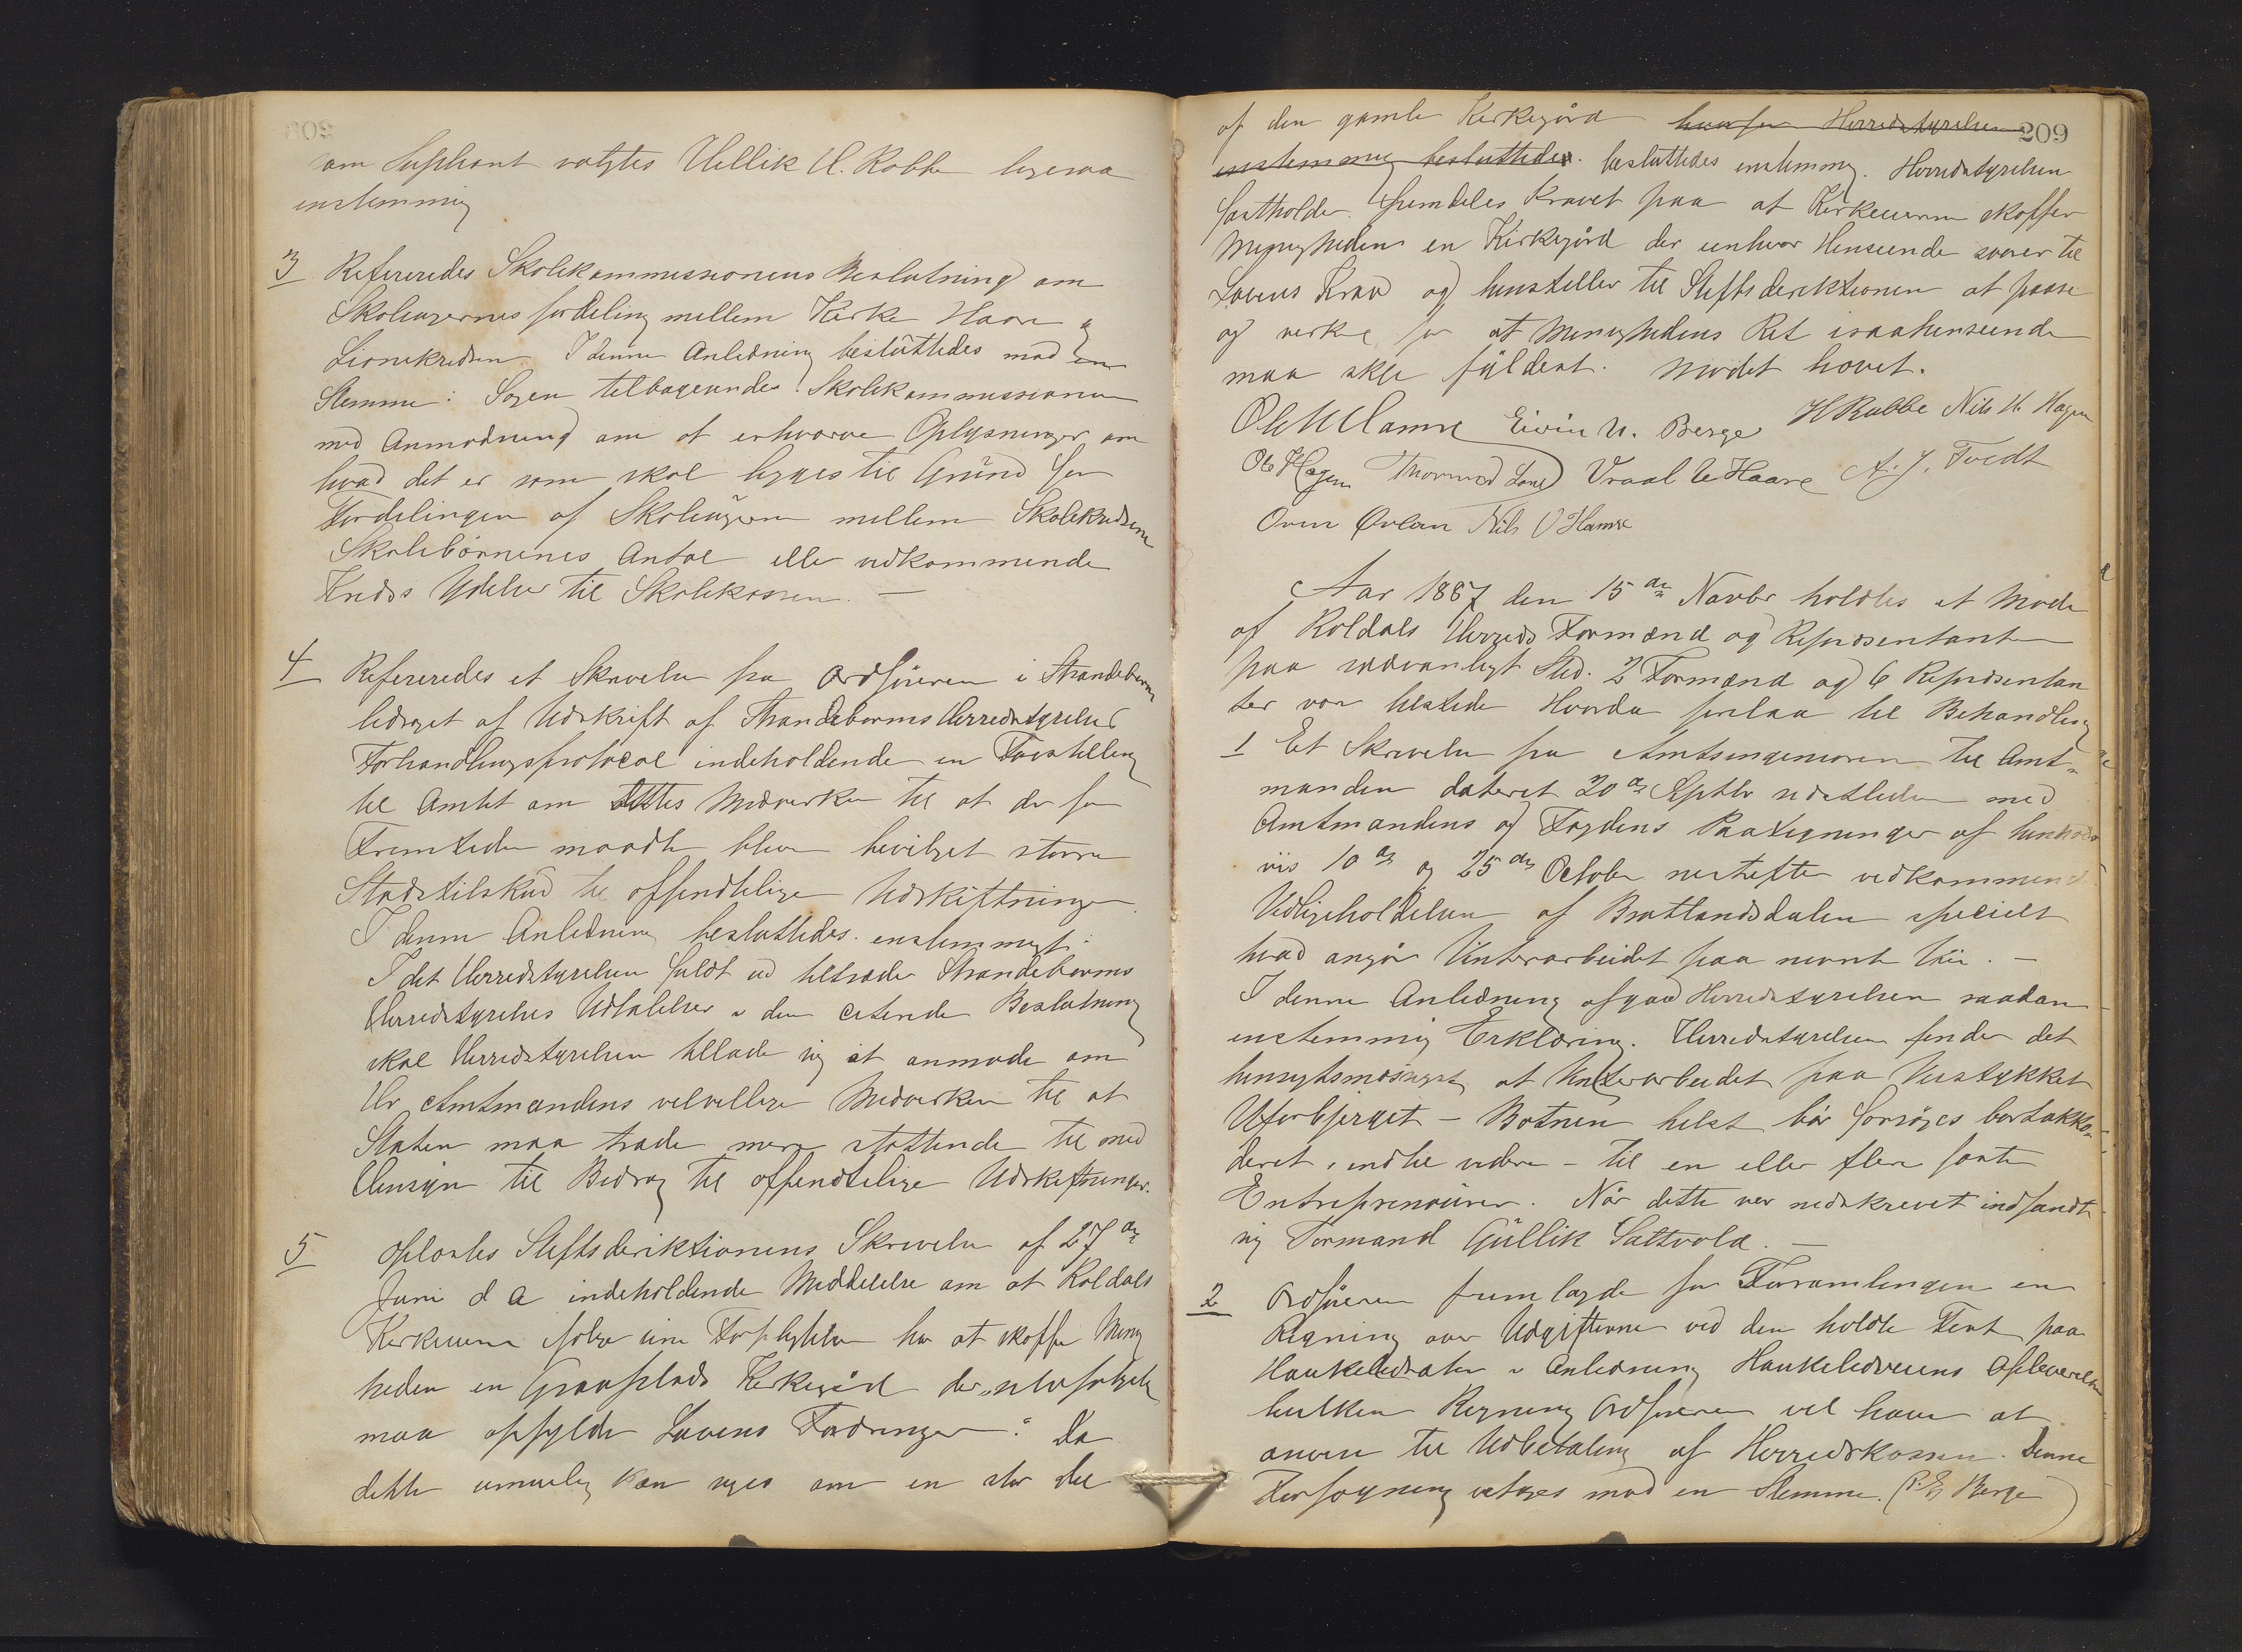 som Suphant valgtes Hellik H. Rabbe ligesaa
enstemmig
3 Refereredes Skolekommissionens Beslutning om
Skoleugernes fordeling mellem Kirke Haare og
Lionekredsen. I denne Anledning besluttedes mod en
Stemme: Sagen tilbagesendes Skolekommissionen
med Anmodning om at erhverve Oplysninger om
hvad det er som skal lægges til Grund for
Fordelingen af Skoleugerne mellem Skolekredsene
Skolebørnenes Antal eller vedkommende
Kreds Ydelser til Skolekassen. —
4 Refereredes et Skrivelse fra Ordføreren i Strandebarm
ledsaget af Udskrift af Strandebarms Herredstyrelses
Forhandlingsprotocol indeholdende en Forestilling
til Amtet om dettes Medvirken til at der for
Fremtiden maatte blive bevilget større
Stadstilskud til offendtlige Udskiftninger.
I denne Anledning besluttedes enstemmigt:
I det Herredstyrelsen fuldt ud tiltræder Strandebarms
Herredstyrelses Udtalelser i den citerede Beslutning
skal Herredstyrelsen tillade sig at anmode om
Hr Amtmandens velvillige Medvirken til at
Staten maa træde mere støttende til med
Hensyn til Bidrag til offendtlige Udskiftninger.
5 Oplæstes Stiftsdirektionens Skrivelse af 27de
Juni d A indeholdende Meddelelse om at Røldals
Kirkeeiere ifølge sine Forpligtelser har at skaffe Menig
heden en Gravplads Kirkegård der "selvfølgelig
maa opfylde Lovens Fordringer". Da
dette umuelig kan siges om en stor del
209
af den gamle Kirkegård hvorfor Herredstyrelsen
enstemmig besluttedes. besluttedes enstemmig. Herredstyrelsen
fastholder fremdeles Kravet paa at Kirkeeierne skaffer
Menigheden en Kirkegård der i enhver Henseende svarer til
Lovens Krav og henstiller til Stiftsdirektionen at paase
og virke for at Menighedens Ret i saa henseende
maa skje fyldest. Mødet hævet.
Ole M Hamre Eivin N. Berge H Rabbe Nils H. Hagen
Ole Hagen Thormod Lone Vraal O Haare A. J. Tvedt
Oven Øvlan Nils O Hamre
Aar 1887 den 15de Novbr holdtes et Møde
af Røldals Herreds Formænd og Repræsentanter
paa sædvanligt Sted. 2 Formænd og 6 Repræsentan
ter var tilstede Hvorda forelaa til Behandling
1 Et Skrivelse fra Amtsingeniøren til Amt=
manden dateret 20de Septbr sidstleden med
Amtmandens og Fogdens Paategninger af henholds
vis 10de og 25de October næstefter vedkommende
Vedligeholdelsen af Bratlandsdalen specielt
hvad angår Vinterarbeidet paa nævnte Vei. —
I denne Anledning afgav Herredstyrelsen saadan
enstemmig Erklæring. Herredstyrelsen finder det
hensigtsmæssigst at Vinterarbeidet paa Veistykket
Uforbjerget – Botnen helst bør forsøges bortakko=
deret, indtil videre – til en eller flere faste
Entreprenøurer. Når dette var nedskrevet indfandt
sig Formand Gullik Sattvold. —
2 Ordføreren fremlagde for Forsamlingen en
Regning over Udgifterne ved den holdte Fest paa
Haukelidsæter i Anledning Haukelidveiens Aflevering
hvilken Regning Ordføreren vil have at
anvise til Udbetaling af Herredskassen. Denne
Forføyning vetoges mod en Stemme. (P. E Berge)